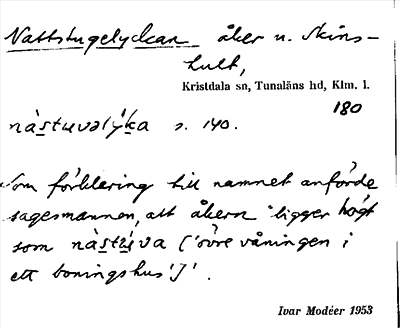 Nattstugelyckan åker n. Skins-
hult,
Kristdala sn, Tunaläns hd, Klm. l.
180
nàs̲tuvəlýk̲a s. 140.
Som förklaring till namnet anförde
sagesmannen, att åkern "ligger högt
som nàs̲túva ('övre våningen i
ett boningshus')".
Ivar Modéer 1953